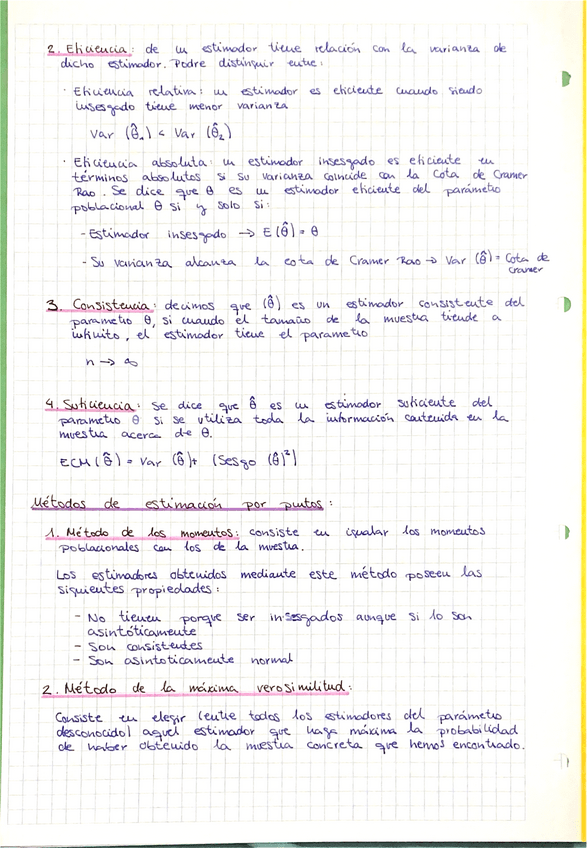 2. Eficiencia: de un estimador tiene relación con la varianza de
dicho estimador. Podre distinguir entre:
· Eficiencia relativa: un estimador es eficiente cuando siendo
insesgado tiene menor varianza
Var (θ̂₁) < Var (θ̂₂)
· Eficiencia absoluta: un estimador insesgado es eficiente en
términos absolutos si su varianza coincide con la Cota de Cramer
Rao. Se dice que θ es un estimador eficiente del parámetro
poblacional θ si y solo si:
- Estimador insesgado → E(θ̂) = θ
- Su varianza alcanza la cota de Cramer Rao → Var (θ̂) = Cota de
Cramer
3. Consistencia: decimos que (θ̂) es un estimador consistente del
parametro θ, si cuando el tamaño de la muestra tiende a
infinito, el estimador tiene el parametro
n → ∞
4. Suficiencia: Se dice que θ̂ es un estimador suficiente del
parametro θ si se utiliza toda la información contenida en la
muestra acerca de θ.
ECM(θ̂) = Var (θ̂)+ (Sesgo (θ̂)²)
Métodos de estimación por puntos:
1. Método de los momentos: consiste en igualar los momentos
poblacionales con los de la muestra.
Los estimadores obtenidos mediante este método poseen las
siguientes propiedades:
- No tienen porque ser insesgados aunque si lo son
asintóticamente
- Son consistentes
- Son asintoticamente normal
2. Método de la máxima verosimilitud:
Consiste en elegir (entre todos los estimadores del parámetro
desconocido) aquel estimador que haga máxima la probabilidad
de haber obtenido la muestra concreta que hemos encontrado.